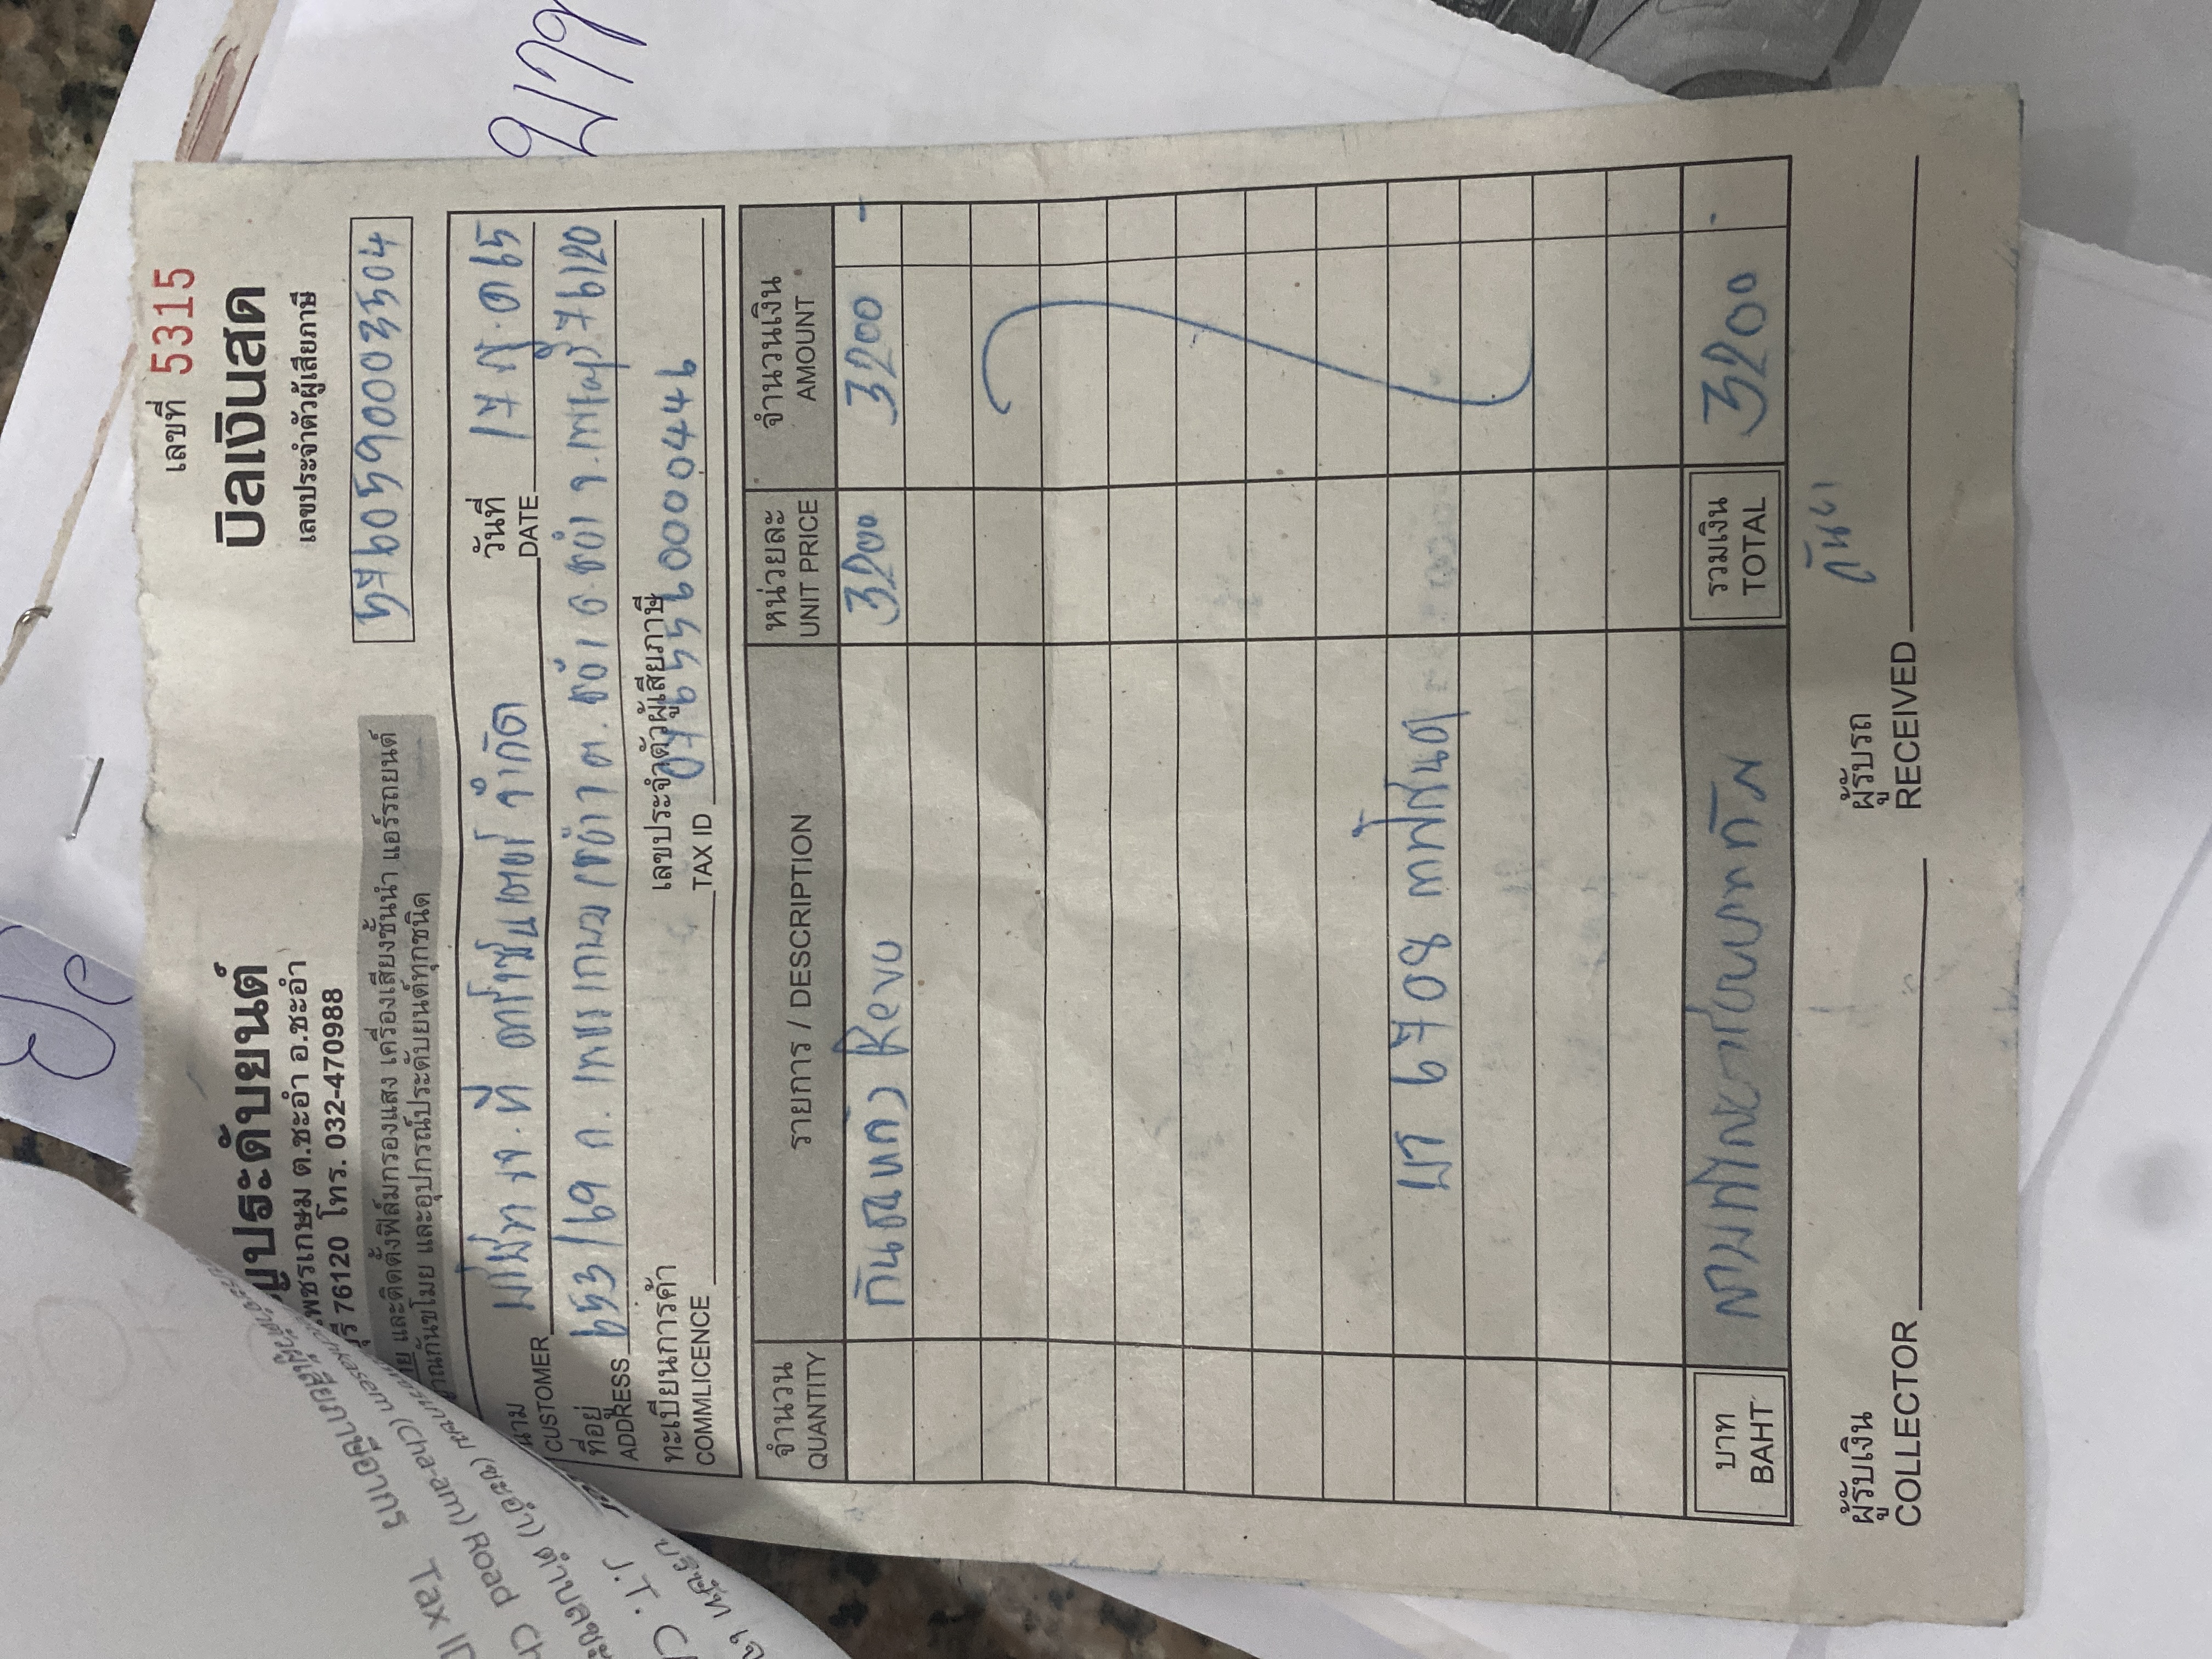 เลขที่ 5315
บิลเงินสด
เลขประจำตัวผู้เสียภาษี
5760590003504
ญประดับยนต์
เพชรเกษม ต.ชะอำ อ.ชะอำ
บุรี 76120 โทร. 032-470988
และติดตั้งฟิล์มกรองแสง เครื่องเสียงชั้นนำ แอร์รถยนต์
าณกันขโมย และอุปกรณ์ประดับยนต์ทุกชนิด
นาม
CUSTOMER บริษัท เจ.ที คาร์เซ็นเตอร์ จำกัด
วันที่
DATE 17 พ.ค 65
ที่อยู่
ADDRESS 653/69 ถ.เพชรเกษม (ชะอำ) ต.ชะอำ อ.ชะอำ จ.เพชรบุรี 76120
ทะเบียนการค้า
COMMLICENCE
เลขประจำตัวผู้เสียภาษี
TAX ID 0765560000446
จำนวน
QUANTITY
รายการ / DESCRIPTION
หน่วยละ
UNIT PRICE
จำนวนเงิน
AMOUNT
กันชน Revo 3200 3200 -
บท 6708
บาท
BAHT
สามพันสองร้อยบาทถ้วน
รวมเงิน
TOTAL
3200 -
ผู้รับเงิน
COLLECTOR
ผู้รับรถ
RECEIVED
รถกอธิ
Tax ID
(Cha-am) Road Ch
(ชะอำ) ตำบลชะ
J.T. C
บริษัท เจ